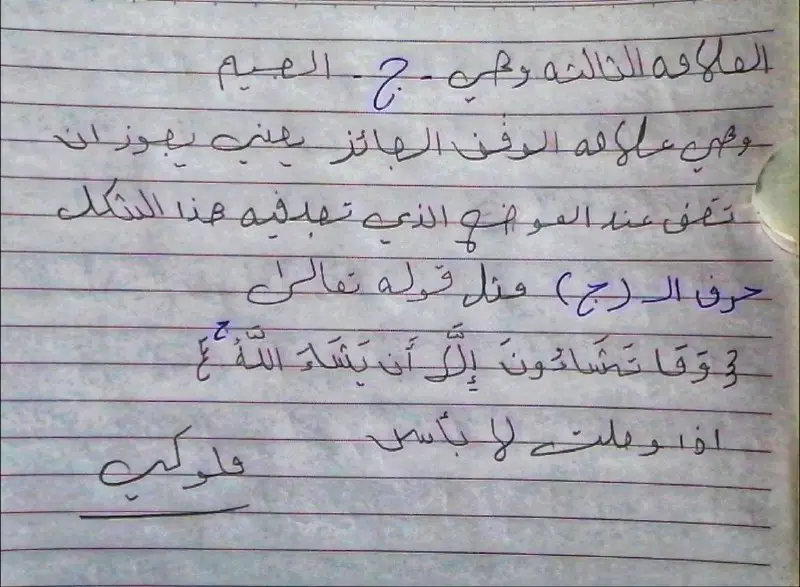 العلامة الثالثة وهي - ج - الجيم
وهي علامة الوقف الجائز يعني يجوز ان
تقف عند الموضع الذي تجد فيه هذا الشكل
حرف الـ (ج) مثل قوله تعالى
{ وَمَا تَشَاءُونَ إِلَّا أَن يَشَاءَ اللَّهُ ج }
اذا وصلت لا بأس
ملوكي